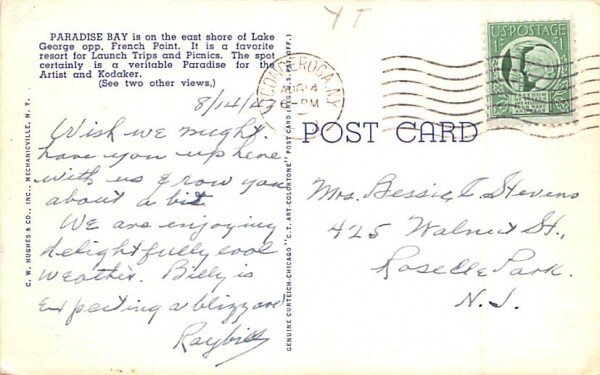 YT
PARADISE BAY is on the east shore of Lake
George opp. French Point. It is a favorite
resort for Launch Trips and Picnics. The spot
certainly is a veritable Paradise for the
Artist and Kodaker.
(See two other views.)
8/14/43
Wish we might
have you up here
with us & row you
about a bit
We are enjoying
delightfully cool
weather. Billy is
expecting a blizzard
C. W. HUGHES & CO., INC., MECHANICVILLE, N. Y.
GENUINE CURTEICH-CHICAGO "C.T. ART-COLORTONE" POST CARD (REG. U. S. PAT. OFF.)
TICONDEROGA, N.Y.
AUG 14
PM
U.S. POSTAGE
1¢ 1¢
POST CARD
Mrs. Bessie I. Stevens
425 Walnut St.,
Roselle Park.
N.J.